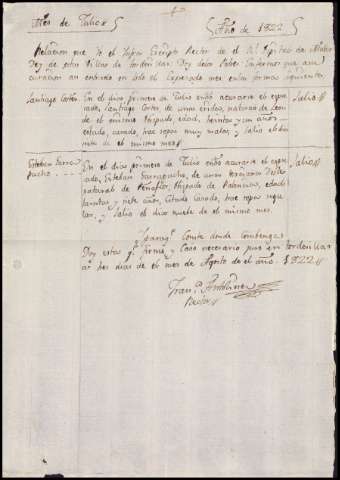 Mes de Julio
Año de 1822
Relacion que Yo el Infras Escripto Rector de el Rl Ospital de Mater
Dey de estas Villas de Tordesillas, Doy de los Pobes Enfermos que an
curados an entrado en todo el Espesado mes en las formas siguiente
Santiago Corten. En el dia primero de Julio entro acurarse el espe-
sado, Santiago Corten, de unos natural de
de el mismo Hospado edad, treintas y un años
estado, casado, trae ropas muy malas, y salio el
de el mismo mes
Salio
Esteban Sarra
pucho
En el dia primero de Julio entro acurarse el espe-
sado, Esteban Sarrapucho, de unas tercianas
natural de Peñaflor, Hospado de Palencia, edad
treintas y siete años, estado casado, trae ropas regu
lar, y Salio el dia nuebe de el mismo mes.
Salio
Iparaq.e Conste donde Combenga
Doy estas q.e firmo, y Caso necesario juro en Tordesillas
a tres dias de el mes de Agosto de el año 1822
Fran.co Antolinez
Rector